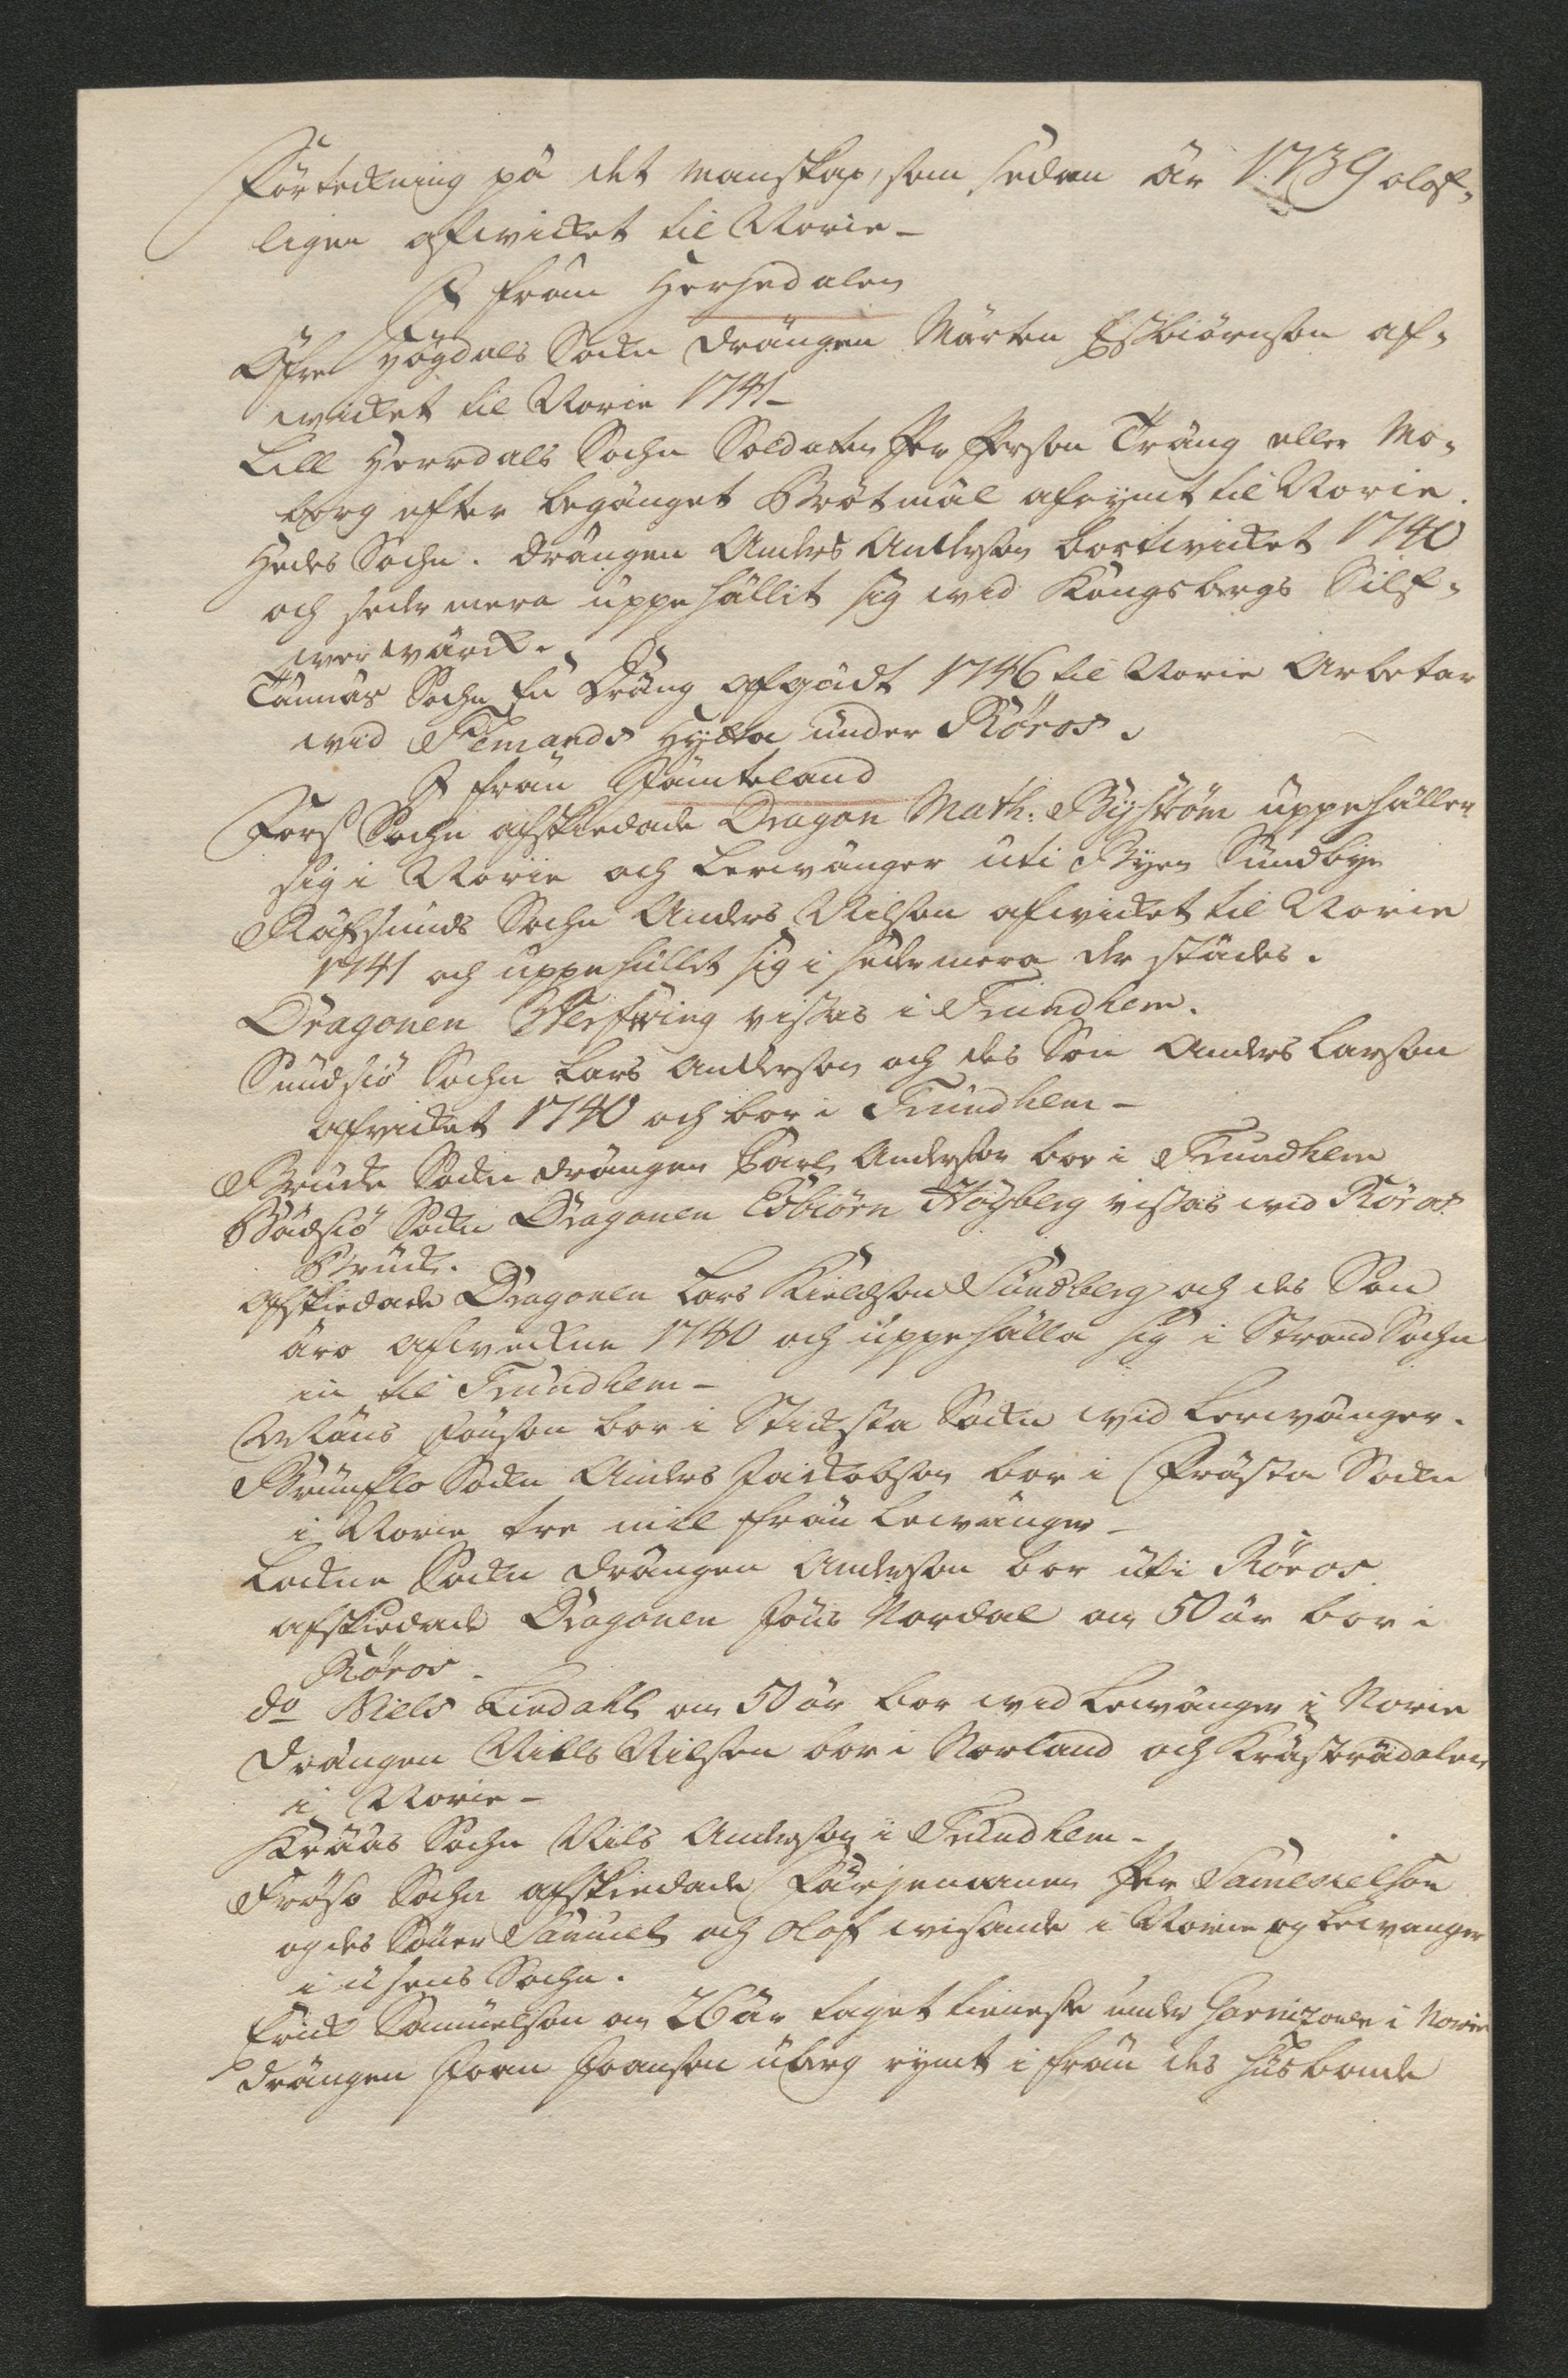 Förteckning på det manskap, som sedan år 1739 olof-
ligen afwicket til Norie_
I från Herjedalen
Öfre Hogdals Sockn Drängen Mårten Esbiörnson af-
wicket til Norie 1741_
Lill Herrdals Sochn Soldaten Per Person Träng eller Mo-
borg efter begånget Brötmål afrymt til Norie.
Hedes Sochn. Drängen Anders Anderson bortwicket 1740
och sedermera uppehållit sig wid Kongsbergs Silf-
werwärck.
Tännäs Sochn En Dräng afgådt 1746 til Norie Arbetar
wid Femands Hytta under Röros.
I från Jämteland
Forss Sochn afskiedade Dragon Math: Byström uppehåller
sig i Norie och Lerwånger uti Byen Sundbye
Räfsunds Sochn Anders Nilson afwicket til Norie
1741 och uppehållet sig i sedermera der städes.
Dragonen Werfwing vistas i Trundhem.
Sundsiö Sochn Lars Anderson och des Son Anders Larson
afvicket 1740 och bor i Trundhem_
Brunde Sockn Drängen Carl Anderson bor i Trundhem
Bodsiö Sockn Dragonen Esbiörn Högberg vistas wid Röros
Bruck.
Afskiedade Dragonen Lars Kieldson Sundberg och des Son
äro afweckne 1740 och uppehålla sig i Strand Sochn
in til Trundhem_
Måns Jonson bor i Sticksta Sockn wid Lerwånger.
Brunflo Sockn Anders Jackobson bor i Fråsta Sockn
i Norie tre mil från Lewånger_
Lockne Sockn Drängen Anderson bor uti Röros
afskiedade Dragonen Jöns Nordal om 50 år bor i
Röros.
do Niels Lindahl om 50 år bor wid Lewånger i Norie
Drängen Nills Nilsen bor i Norland och Kråsträdalen
i Norie_
Kråås Sochn Nils Anderson i Trundhem_
Frösö Sochn afskiedade Färjemannen Per Samuelson
og des Söner Samuel och Olof wistande i Norie og Lewanger
i usens Sochn.
Erick Samuelson om 26 år taget tieneste under Garnizonen i Norie
Drängen Joen Joensson überg rymt i från des Husbonde